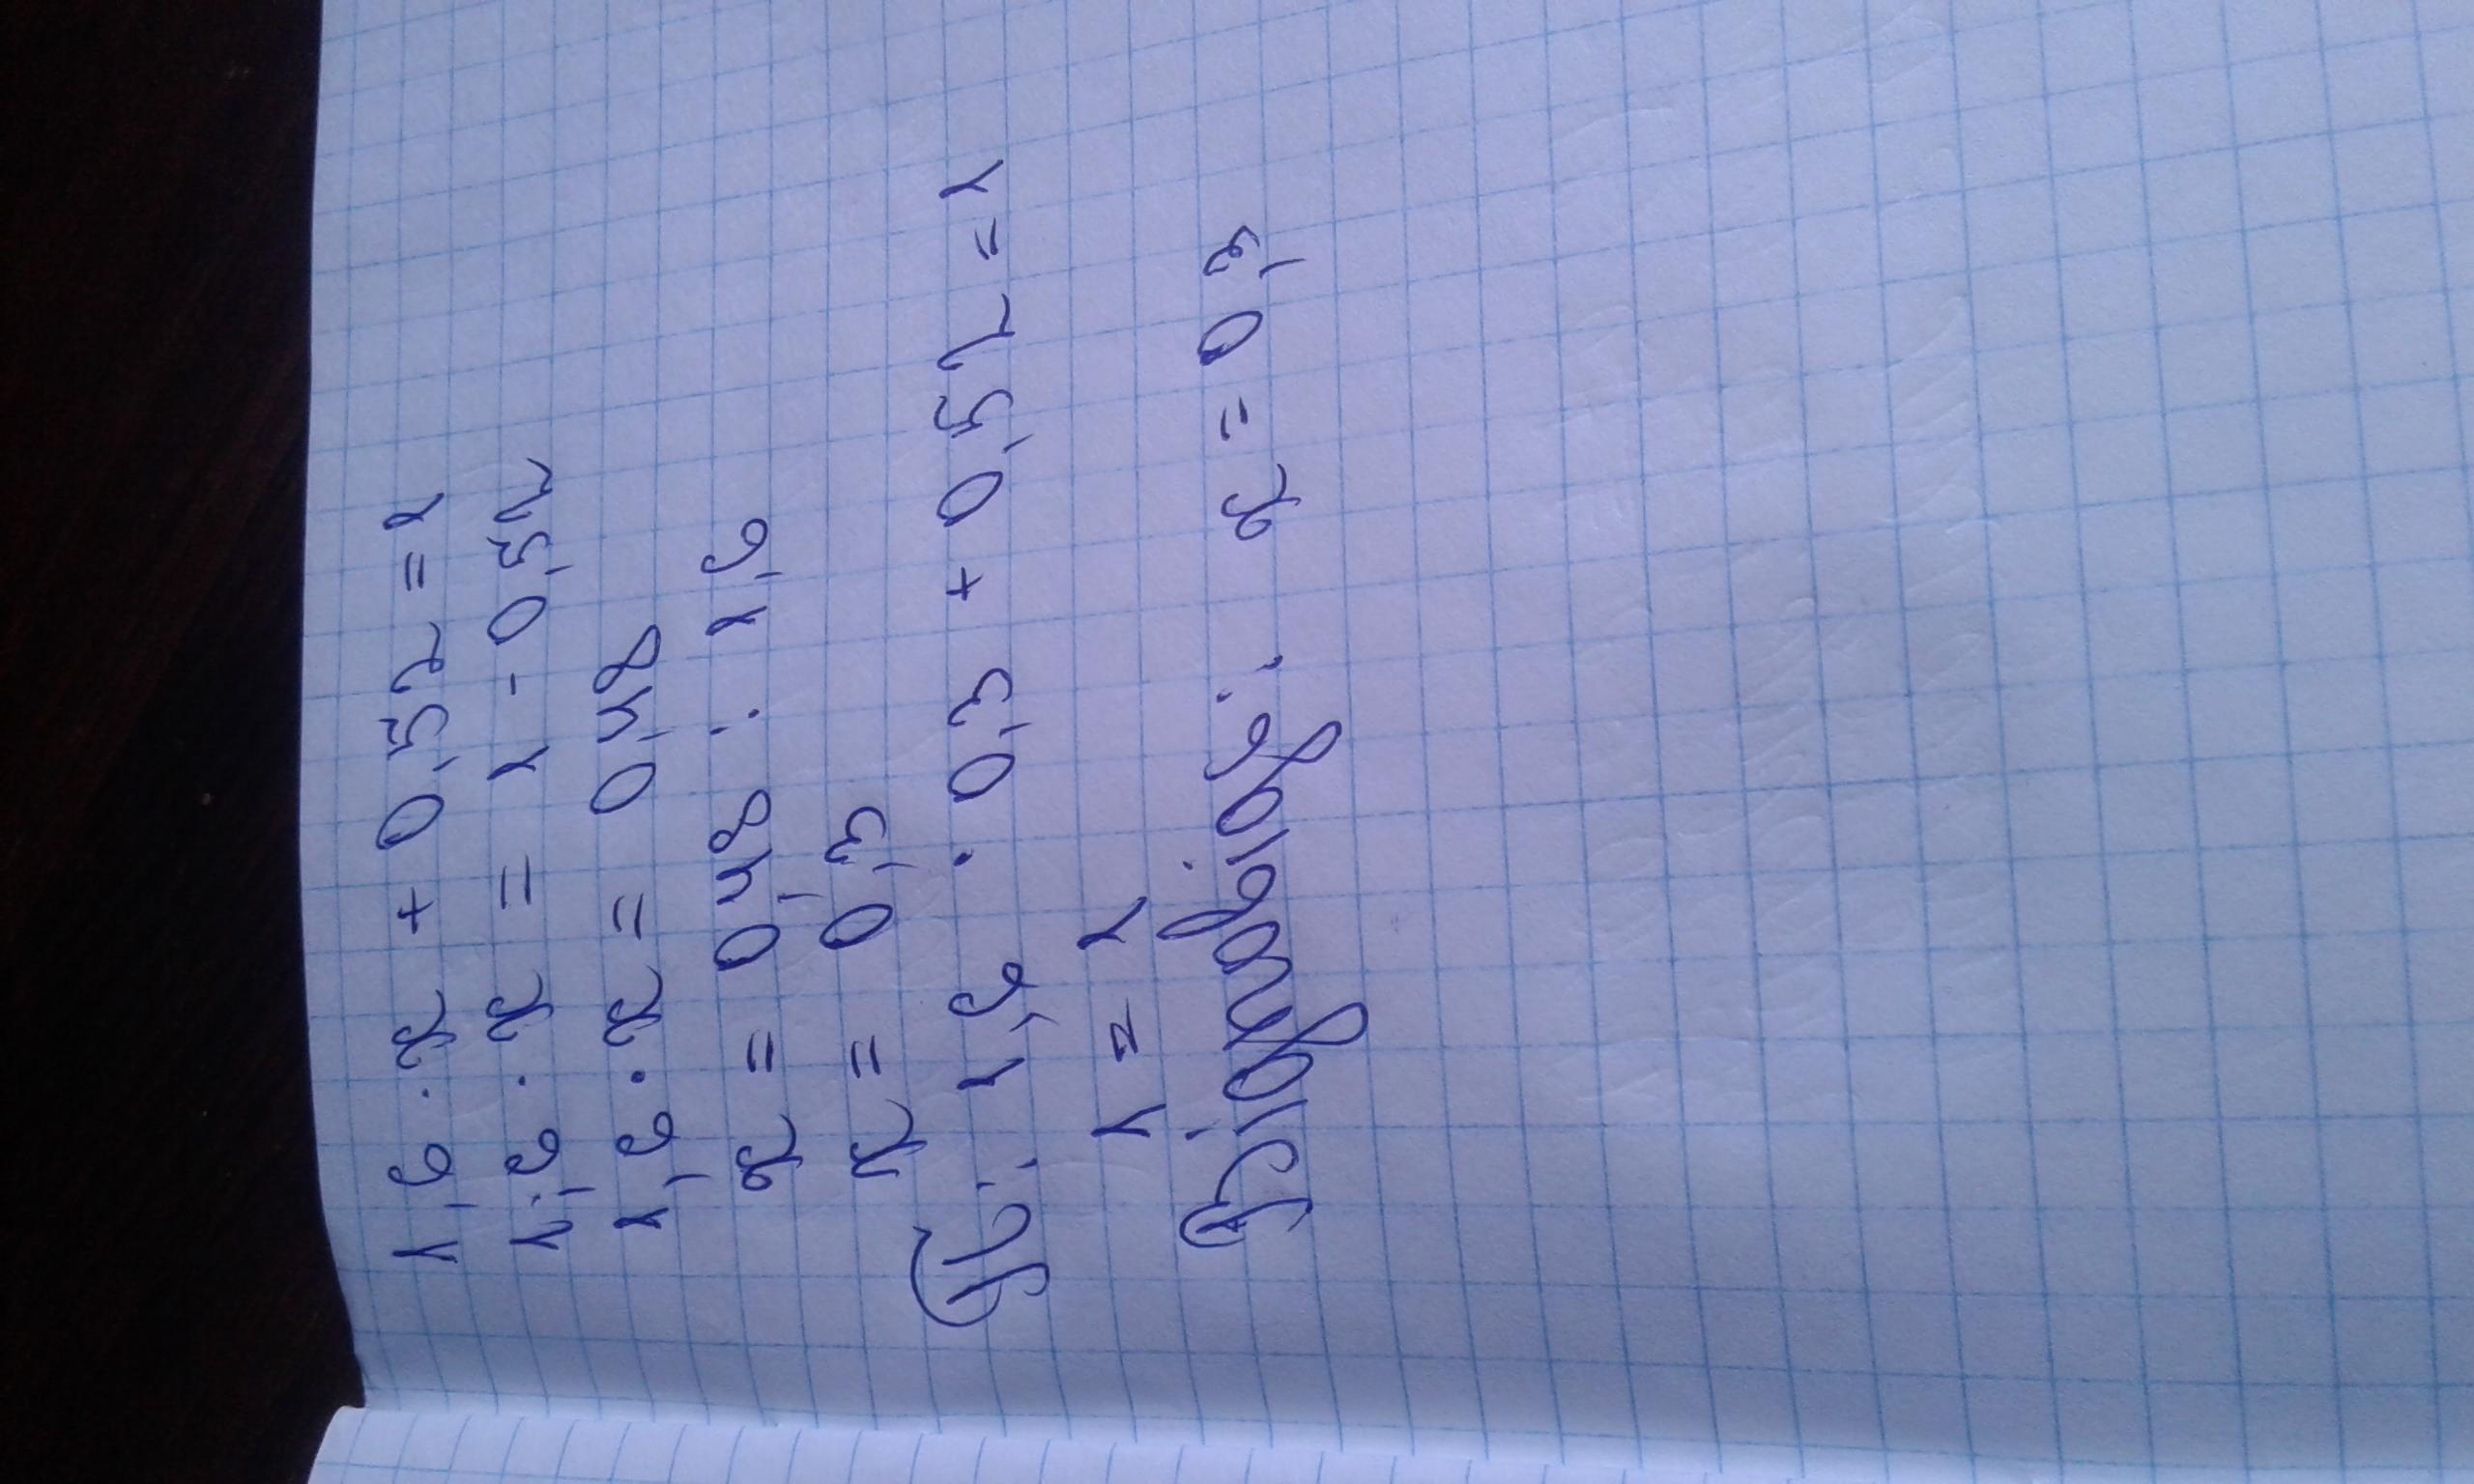 1,6 · x + 0,52 = 1
1,6 · x = 1 - 0,52
1,6 · x = 0,48
x = 0,48 : 1,6
x = 0,3
П: 1,6 · 0,3 + 0,52 = 1
1 = 1
Відповідь: x = 0,3